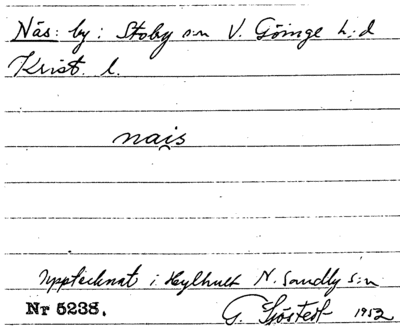 Näs: by: Stoby s:n V. Göinge h:d
Krist. l.
nais
Upptecknat i Heylhult N. Sandby s:n
Nr 5238. G. Sjöstedt 1952